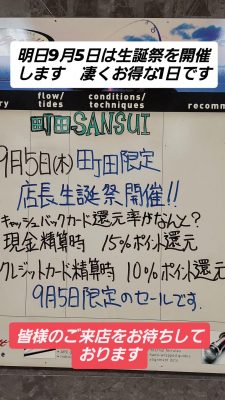 明日9月5日は生誕祭を開催
します　凄くお得な1日です
flow/
tides
conditions/
techniques
recomm
町田-SANSUI
9月5日(木)町田限定
店長生誕祭開催!!
キャッシュバックカード還元率がなんと?
現金精算時 15%ポイント還元
クレジットカード精算時 10%ポイント還元
9月5日限定のセールです.
皆様のご来店をお待ちして
おります